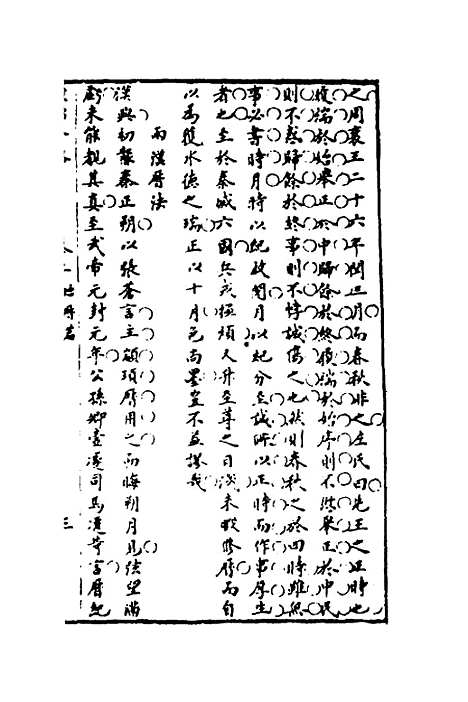 之周襄王二十六年閏三月而春秋非之左氏曰先王之正時也
履端於始舉正於中歸餘於終履端於始序則不愆舉正於中民
則不惑歸餘於終事則不悖誠傷之也然則春秋之於四時雖無
事必書時月時以紀啟閉月以紀分至誠所以正時而作事厚生
者也至於秦滅六國兵戎極煩又升至尊之日淺未暇修曆而自
以為獲水德之瑞正以十月色尚墨豈不益謬哉
兩漢曆法
漢興初襲秦正朔以張蒼言主顓頊曆用之而晦朔月見弦望滿
虧未能覩其真至武帝元封元年公孫卿壺遂司馬遷等言曆紀
三